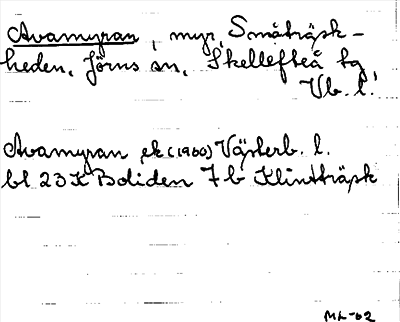 Avamyran, myr, Småträsk-
heden, Jörns sn, Skellefteå tg
Vb. l.
Avamyran ek (1960) Västerb. l.
bl 23 K Boliden 7 b Klintträsk
ML-02